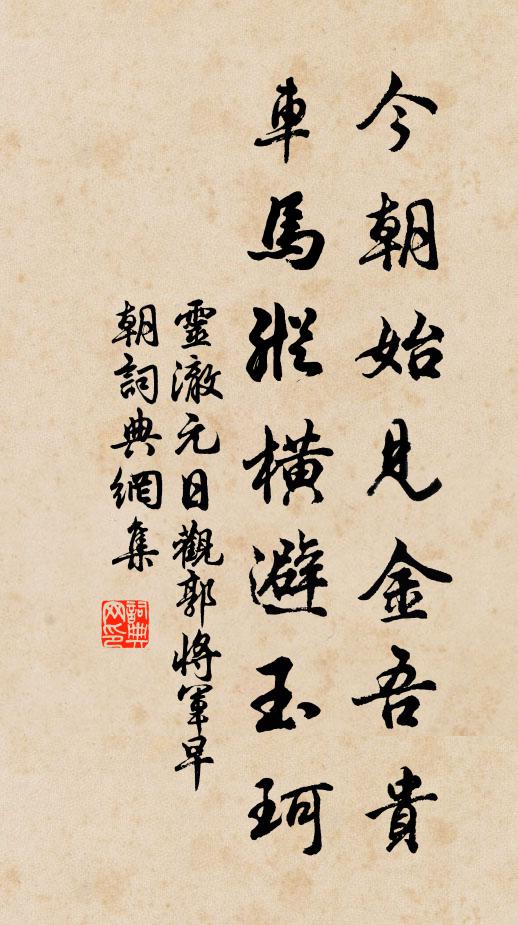 今朝始見金吾貴
車馬縱橫避玉珂
靈澈元日觀郭將軍早
朝詞典網集
詞典
网印